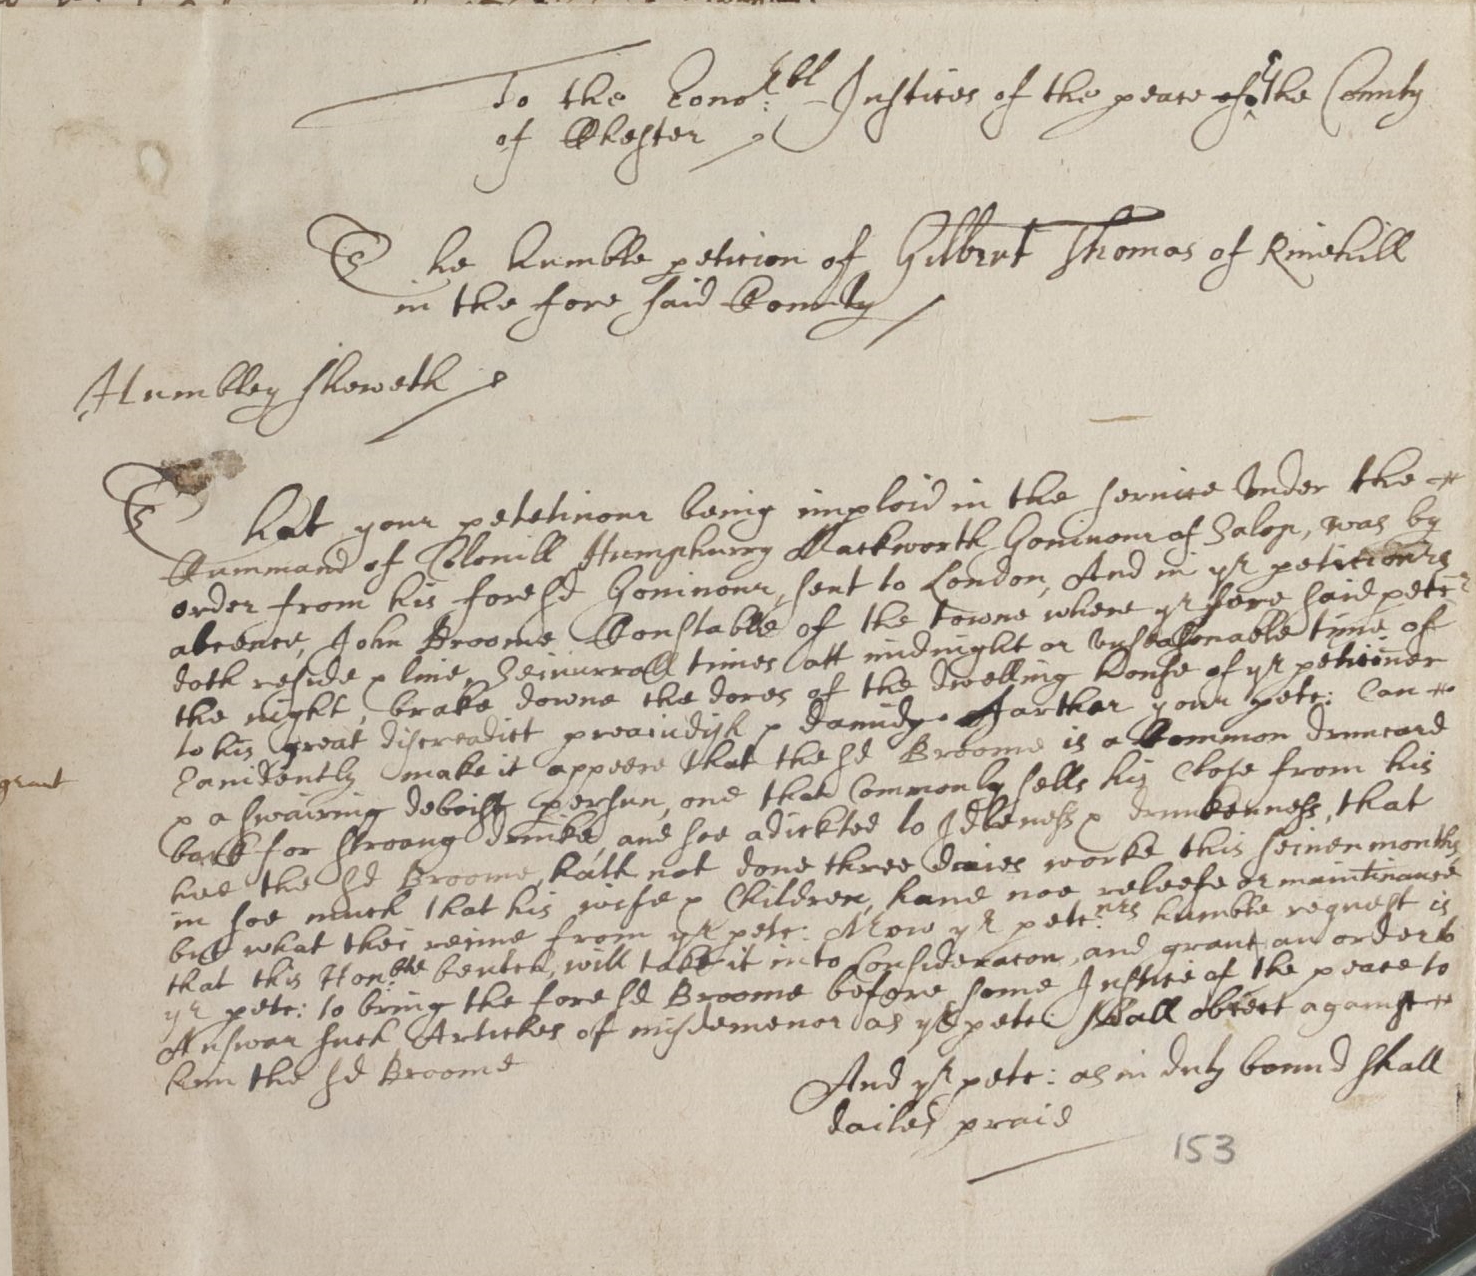 To the Honor:ble Justices of the peace of the County
of Chester
The humble peticion of Gilbert Thomas of Kinehill
in the fore said County
Humbley sheweth
That your petetinour being imploid in the service Under the
Cummand of Colonill Humphurry Mackworth Goninour of Salop, was by
order from his foresd Goninour, sent to London, And in yr peticionrs
absence, John Broome Constable of the towne where yr fore said petr
doth reside & live, Seinurrall times att midnight or Unseasonable time of
the night, brake downe the dores of the dwelling house of yr peticiner
to his great discreadict preaindish & damidg. Farther your petr: Can
Eanidently make it appeere that the sd Broome is a Common druncard
grant
& a swairing deboist person, one that Commonly sells his Close from his
back for stroang drinke, and soe adickted to Idleness & drunkenness, that
hee the sd Broome, hath not done three daies worke this seinen months
in soe much that his wife & Children, have noe releefe or maintinance
but what thei reeine from yr petr: Now yr petc:nrs humble request is
that this Hon:ble bentch, will take it into Consideracon, and grant an order to
yr petr: to bring the fore sd Broome before some Justice of the peace to
Answar such Artickes of misdemenor as yr petr: shall obiect against
him the sd Broome
And yr petr: as in duty bound shall
dailey praie
153